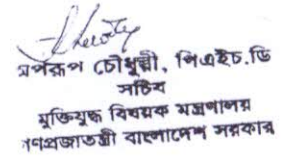 অপরূপ চৌধুরী, পিএইচ.ডি
সচিব
মুক্তিযুদ্ধ বিষয়ক মন্ত্রণালয়
গণপ্রজাতন্ত্রী বাংলাদেশ সরকার